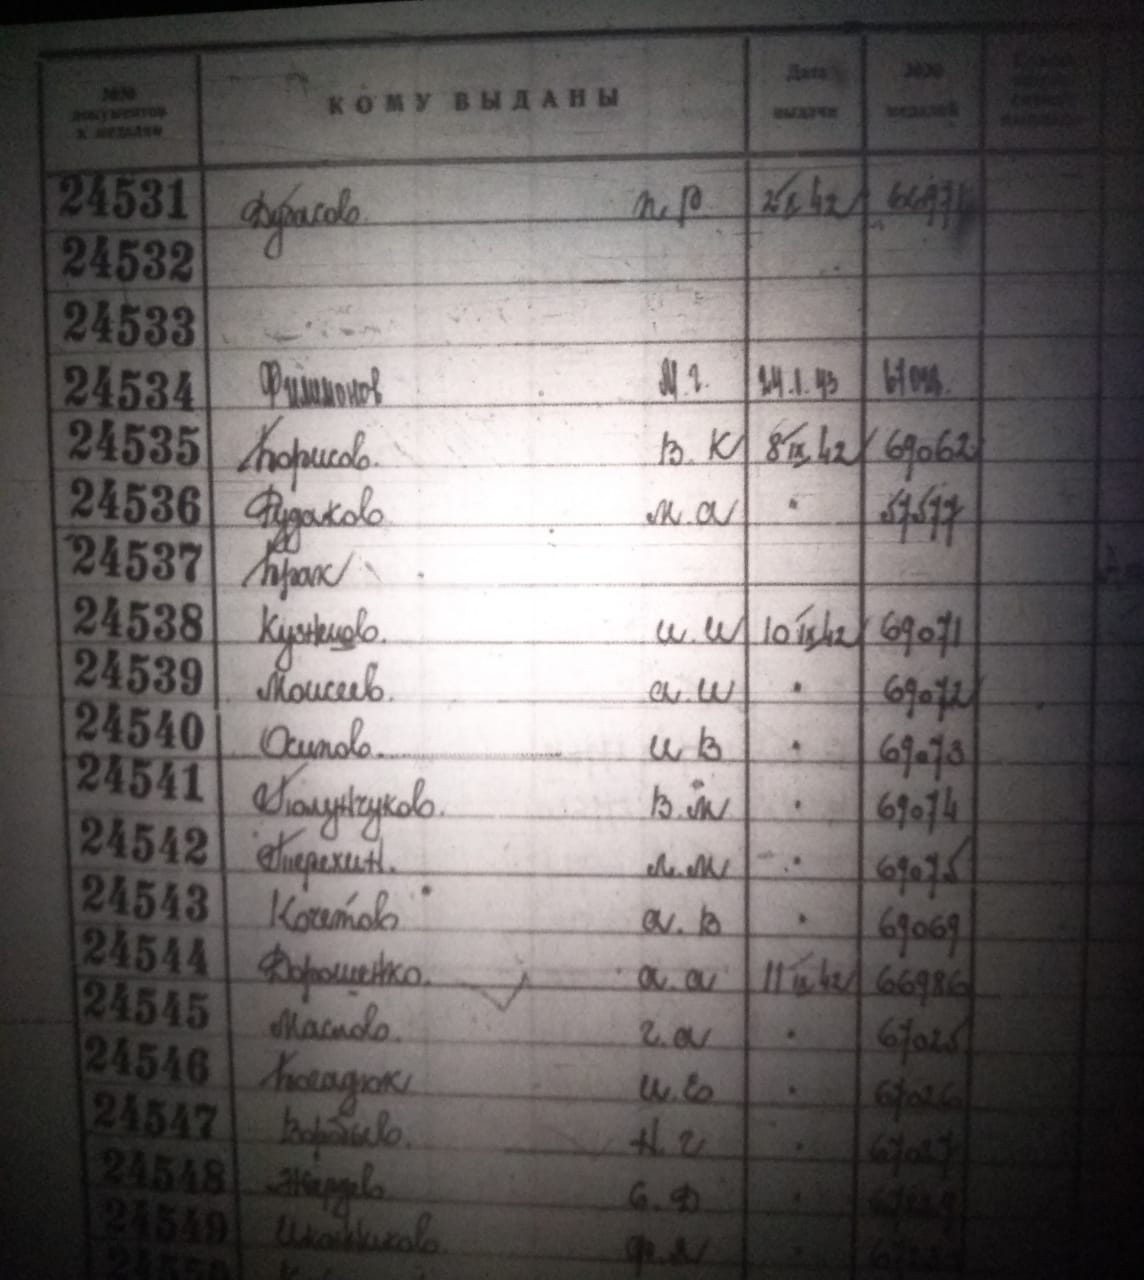 №№ документов к медалям КОМУ ВЫДАНЫ Дата выдачи №№ медалей
24531 Дурасов. П. Р. 2/IX 42 66971
24532
24533
24534 Филимонов М. Г. 24.1.43
24535 Борисов. В. К 8/IX 42 69062
24536 Рудаков М. А " 57577
24537 Брак
24538 Кузнецов. И. И 10/IX 42 69071
24539 Моисеев. А. И " 69072
24540 Осипов. И В " 69073
24541 Полунчуков. В. М " 69074
24542 Терехин. М. М " 69075
24543 Кочетов А. В " 69069
24544 Дорошенко. А. А 11/IX 42 66986
24545 Маслов. Г. А " 67025
24546 И. Е " 67026
24547 Воробьев. Н. Г " 67027
24548 Жердев С. Ф "
24549 "
24550